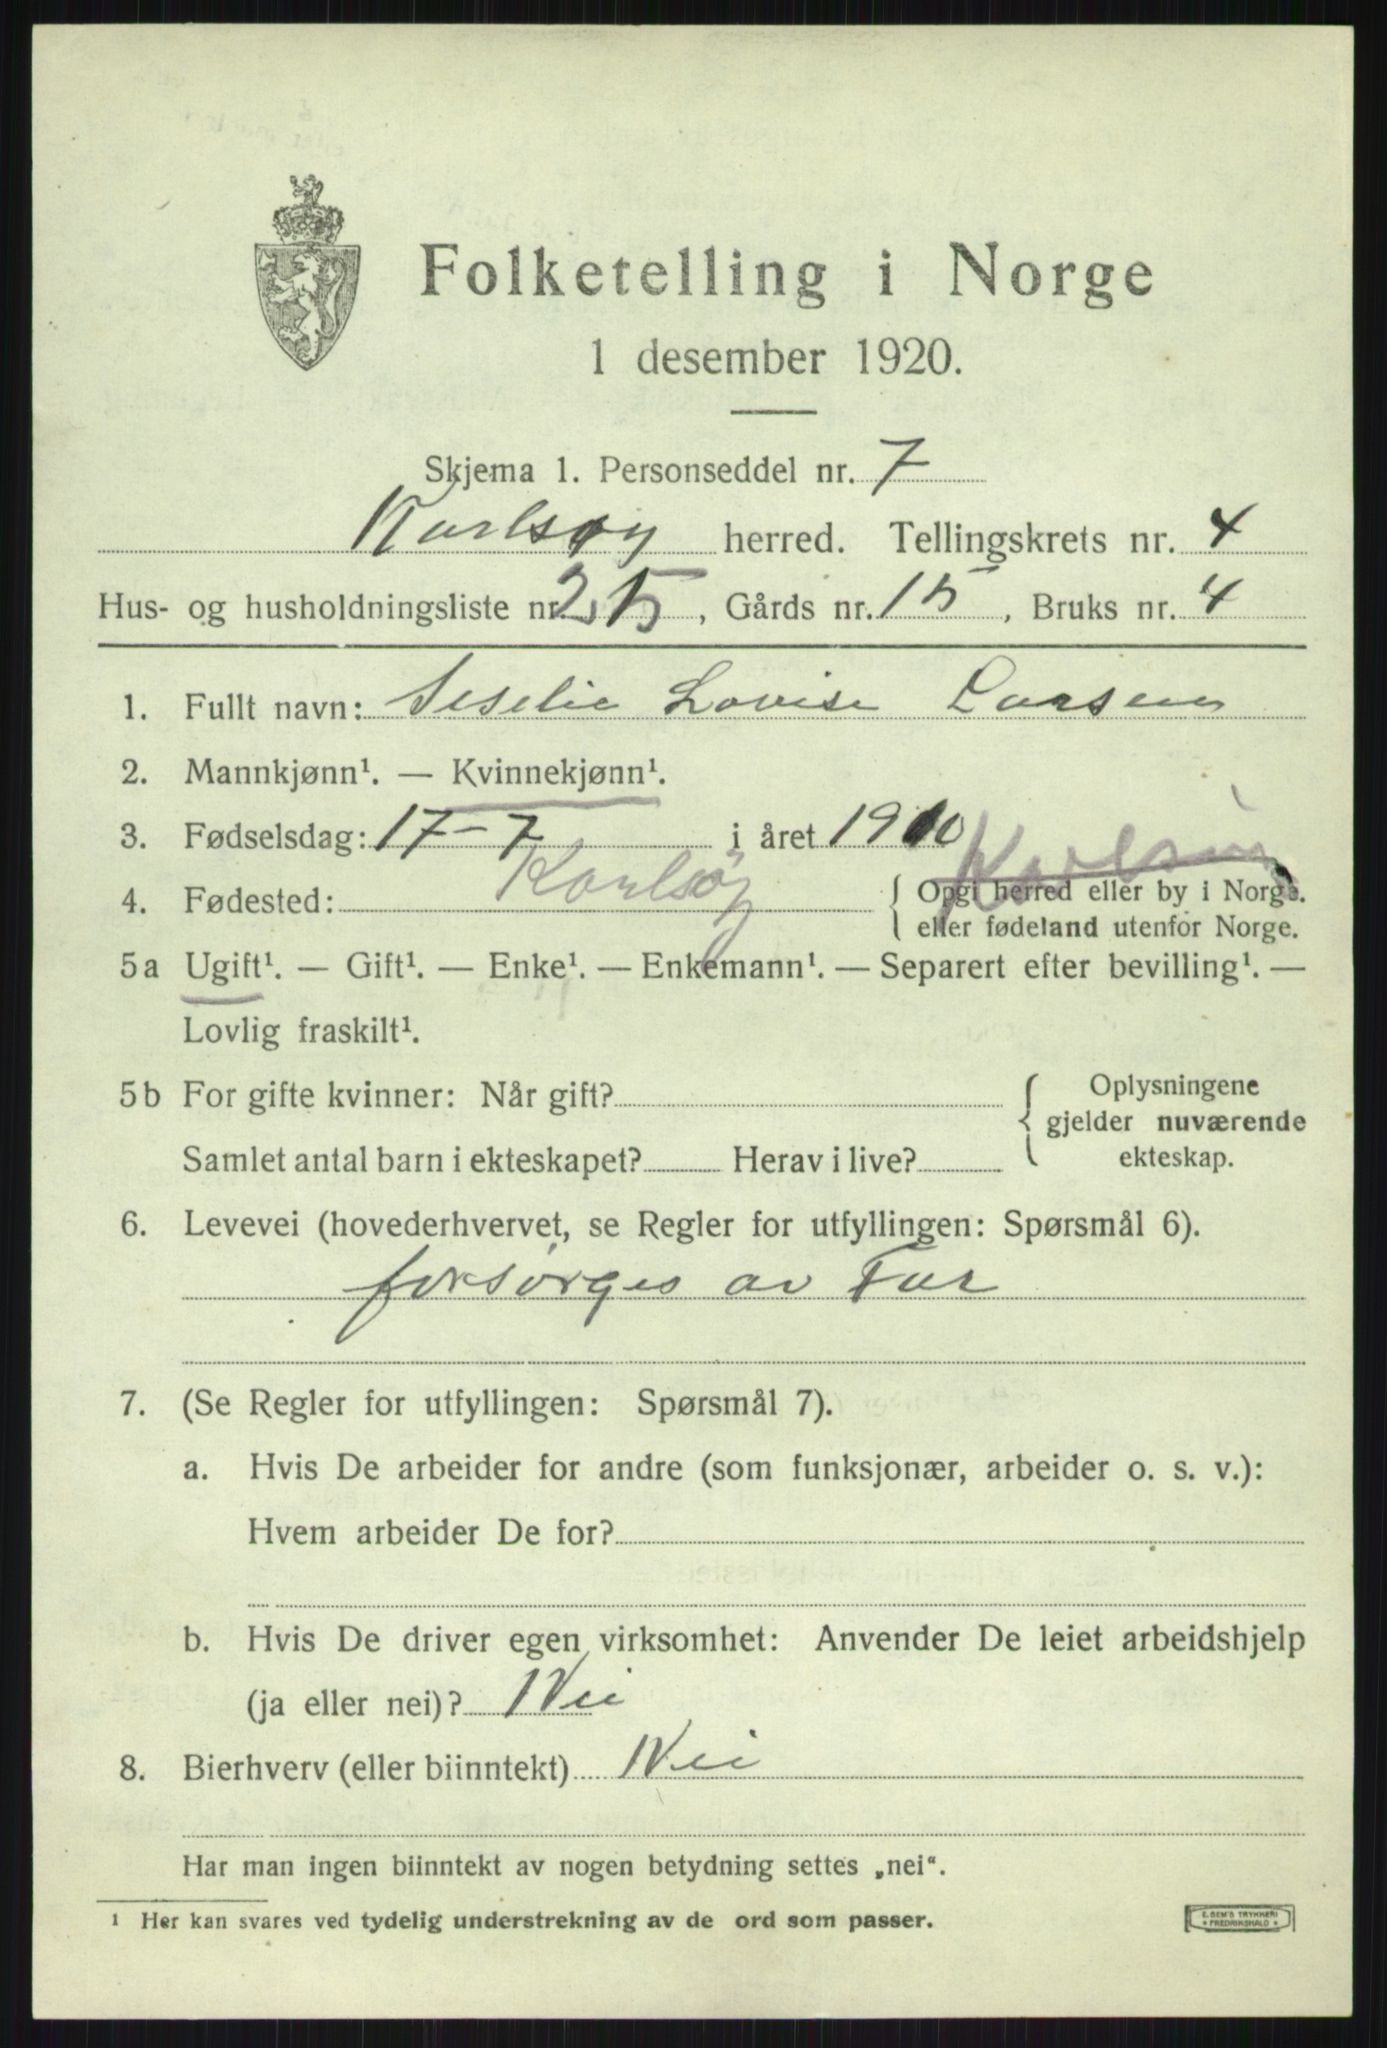 Folketelling i Norge
1 desember 1920.
Skjema 1. Personseddel nr. 7
Karlsøy herred. Tellingskrets nr. 4
Hus- og husholdningsliste nr. 25, Gårds nr. 15, Bruks nr. 4
1. Fullt navn: Seselie Lovise Larsen
2. Mannkjønn¹. — Kvinnekjønn¹.
3. Fødselsdag: 17-7 i året 1910
4. Fødested: Karlsøy { Opgi herred eller by i Norge.
eller fødeland utenfor Norge.
5a Ugift¹. — Gift¹. — Enke¹. — Enkemann¹. — Separert efter bevilling¹. —
Lovlig fraskilt¹.
5b For gifte kvinner: Når gift? { Oplysningene
gjelder nuværende
Samlet antal barn i ekteskapet? Herav i live? ekteskap.
6. Levevei (hovederhvervet, se Regler for utfyllingen: Spørsmål 6).
forsørges av Far
7. (Se Regler for utfyllingen: Spørsmål 7).
a. Hvis De arbeider for andre (som funksjonær, arbeider o. s. v.):
Hvem arbeider De for?
b. Hvis De driver egen virksomhet: Anvender De leiet arbeidshjelp
(ja eller nei)? Nei
8. Bierhverv (eller biinntekt) Nei
Har man ingen biinntekt av nogen betydning settes „nei“.
¹ Her kan svares ved tydelig understrekning av de ord som passer.
E. SEM'S TRYKKERI
* FREDRIKSHALD *